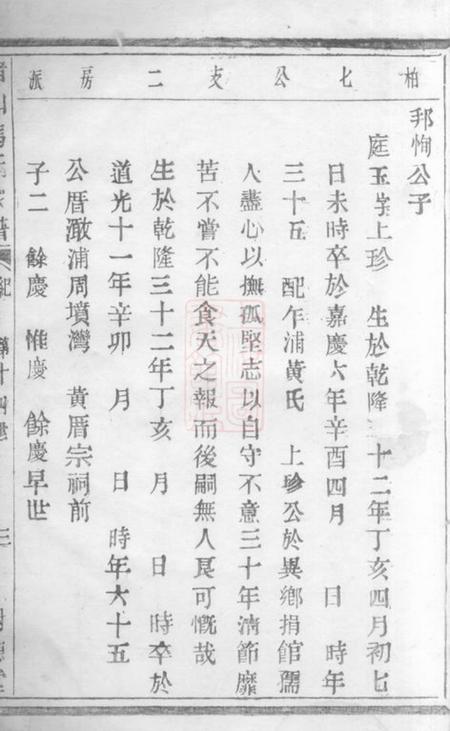 柏七公支二房派
邦恂公子
庭玉字上珍　生於乾隆三十二年丁亥四月初七
日未時卒於嘉慶六年辛酉四月　日　時年
三十五　配乍浦黃氏　上珍公於異鄉捐館孺
人盡心以撫孤堅志以自守不意三十年清節靡
苦不嘗不能食天之報而後嗣無人良可慨哉
生於乾隆三十二年丁亥　月　日　時卒於
道光十一年辛卯　月　日　時年六十五
公厝澉浦周墳灣　黃厝宗祠前
子二　餘慶　惟慶　餘慶早世
譜　紀　第十四世　三